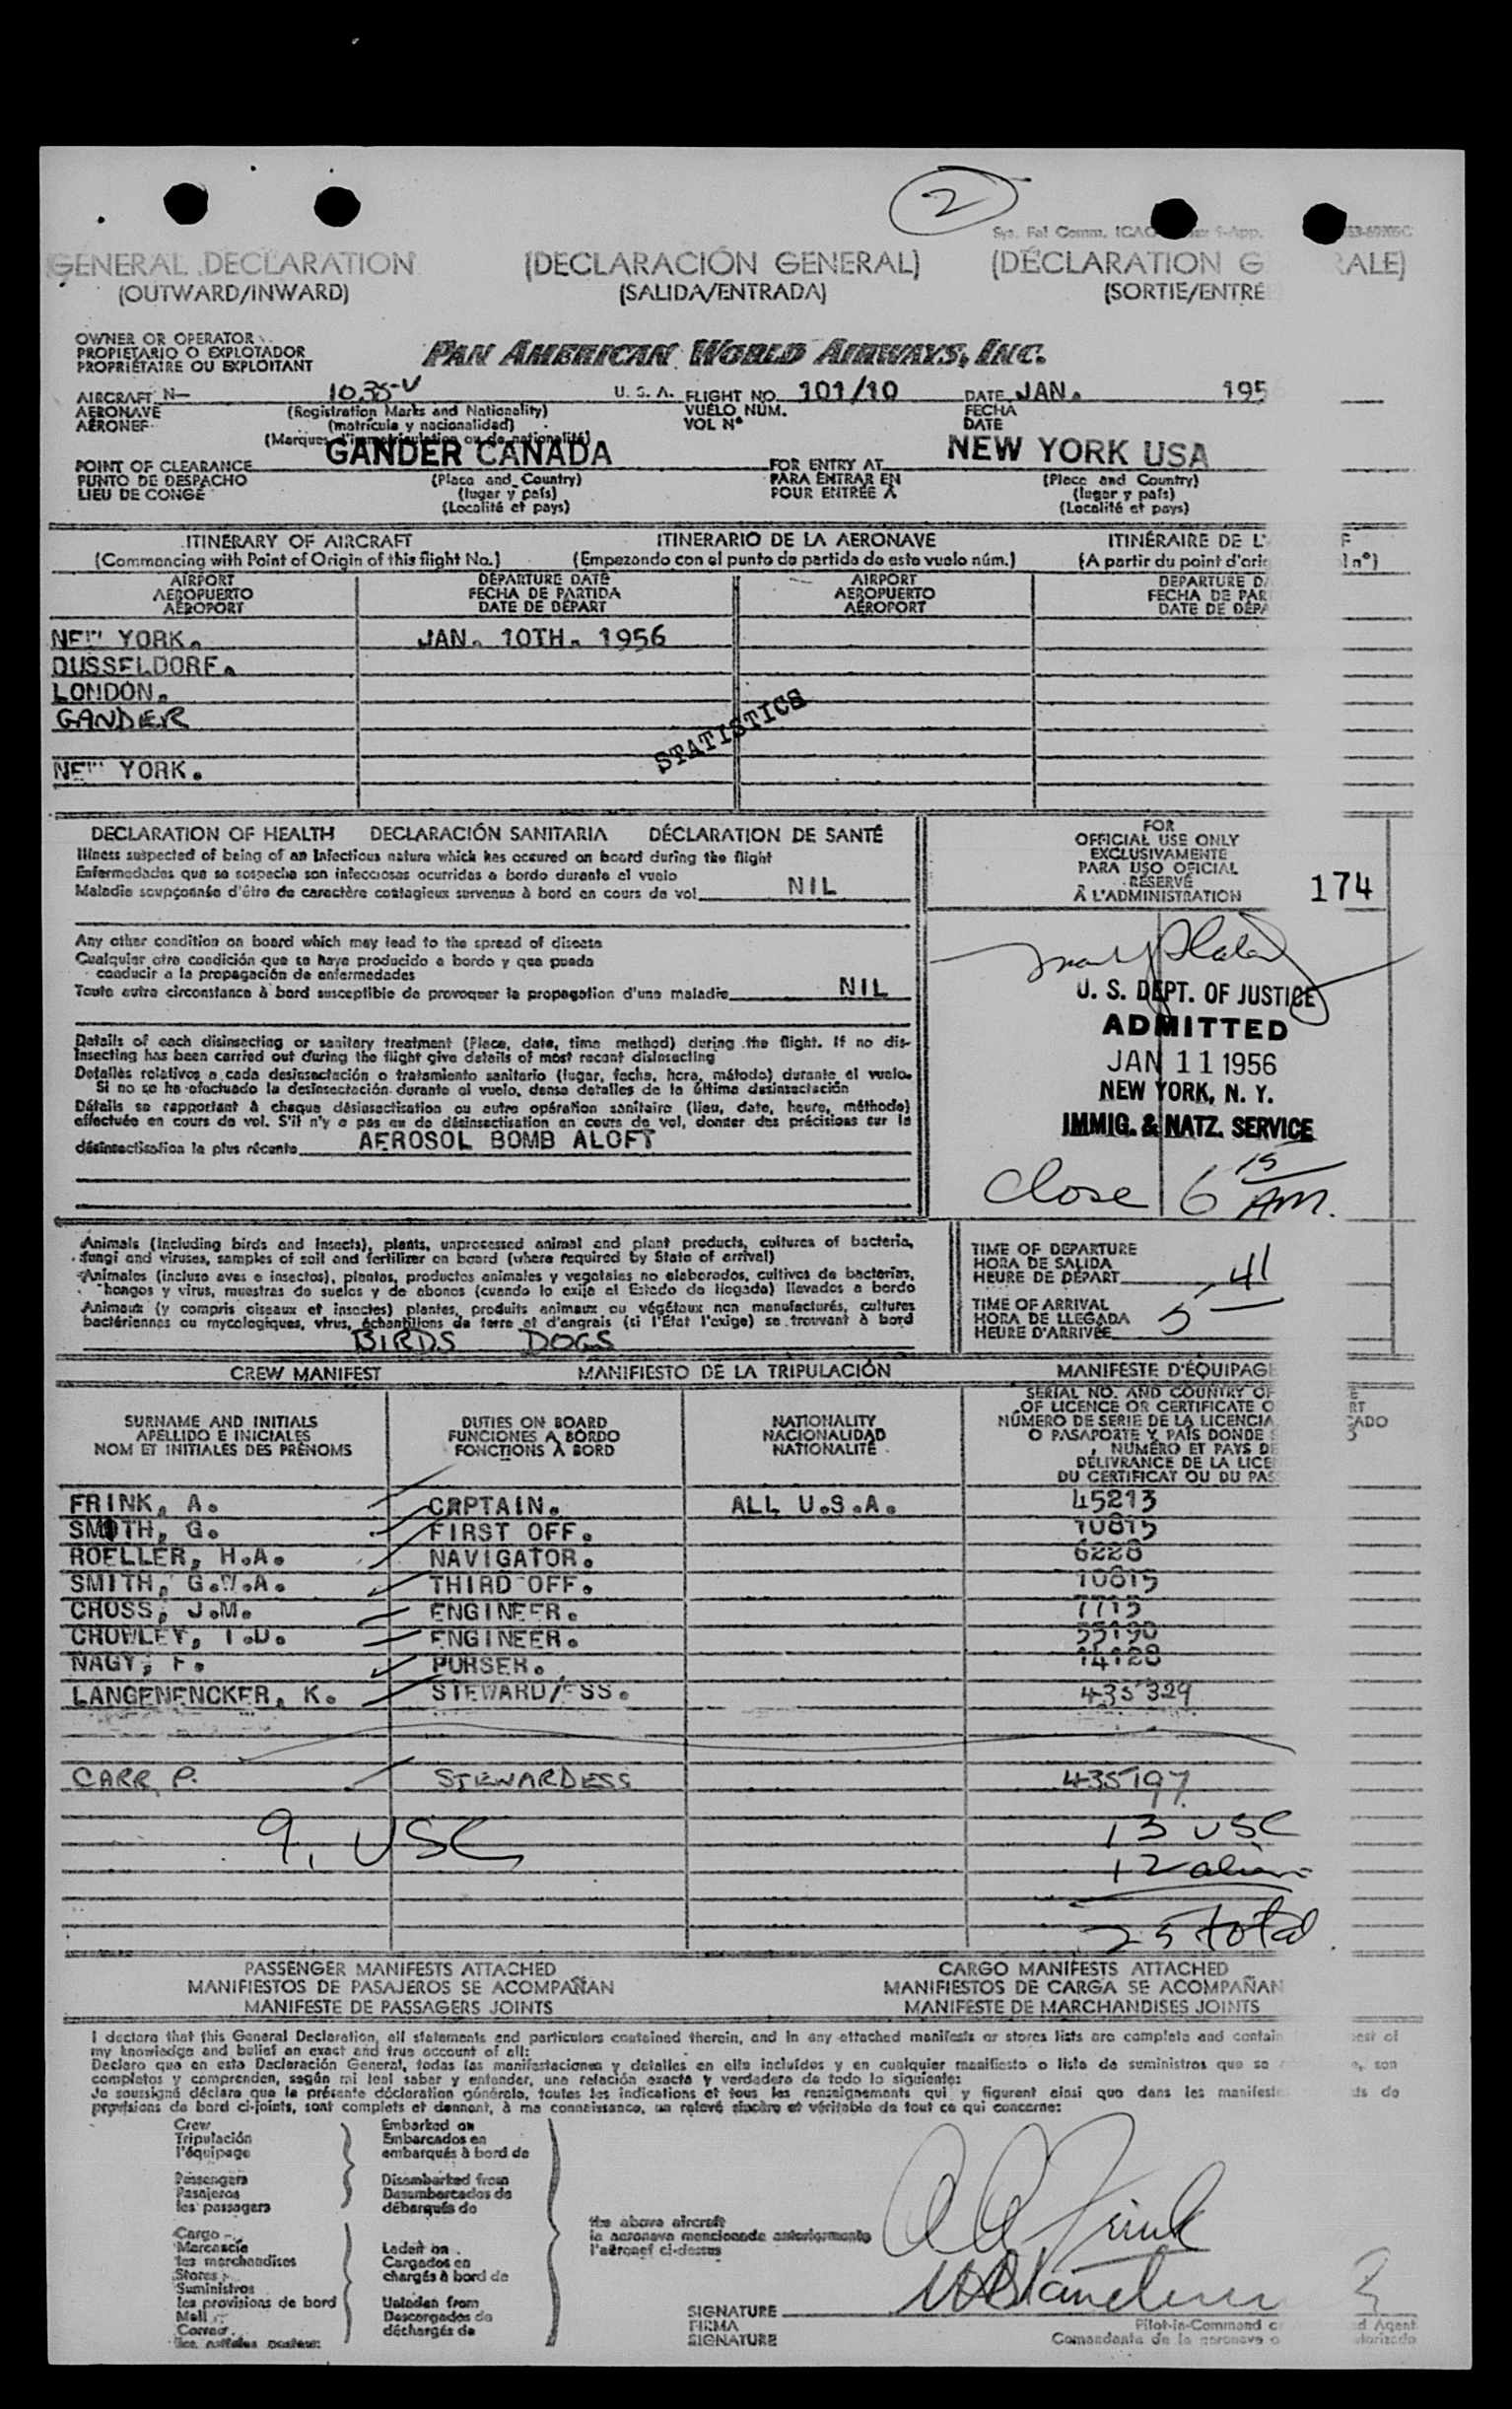 2
Sys. Fal Comm. ICAO
GENERAL DECLARATION (DECLARACIÓN GENERAL) (DÉCLARATION G RALE)
(OUTWARD/INWARD) (SALIDA/ENTRADA) (SORTIE/ENTRÉ
OWNER OR OPERATOR
PROPIETARIO O EXPLOTADOR
PROPRIÉTAIRE OU EXPLOITANT
PAN AMERICAN WORLD AIRWAYS, INC.
AIRCRAFT N— 1035-V U. S. A. FLIGHT NO. 101/10 DATE JAN. 195
AERONAVE (Registration Marks and Nationality) VUELO NÚM. FECHA
AÉRONEF (matrícula y nacionalidad) VOL Nº DATE
GANDER CANADA NEW YORK USA
POINT OF CLEARANCE FOR ENTRY AT
PUNTO DE DESPACHO (Place and Country) PARA ENTRAR EN (Place and Country)
LIEU DE CONGÉ (lugar y país) POUR ENTRÉE À (lugar y país)
(Localité et pays) (Localité et pays)
ITINERARY OF AIRCRAFT ITINERARIO DE LA AERONAVE ITINÉRAIRE DE L'
(Commencing with Point of Origin of this flight No.) (Empezando con el punto de partida de este vuelo núm.) (A partir du point d'orig
AIRPORT DEPARTURE DATE AIRPORT DEPARTURE DA
AEROPUERTO FECHA DE PARTIDA AEROPUERTO FECHA DE PAR
AÉROPORT DATE DE DÉPART AÉROPORT DATE DE DÉPA
NEW YORK. JAN. 10TH. 1956
DUSSELDORF.
LONDON.
GANDER
STATISTICS
NEW YORK.
DECLARATION OF HEALTH DECLARACIÓN SANITARIA DÉCLARATION DE SANTÉ
Illness suspected of being of an infectious nature which has occured on board during the flight
Enfermedades que se sospecha son infecciosas ocurridas a bordo durante el vuelo
Maladie soupçonnée d'être de caractère contagieux survenue à bord en cours de vol NIL
Any other condition on board which may lead to the spread of disease
Cualquier otra condición que se haya producido a bordo y que pueda
conducir a la propagación de enfermedades
Toute autre circonstance à bord susceptible de provoquer la propagation d'une maladie NIL
Details of each disinsecting or sanitary treatment (Place, date, time method) during the flight. If no dis-
insecting has been carried out during the flight give details of most recent disinsecting
Detalles relativos a cada desinsectación o tratamiento sanitario (lugar, fecha, hora, método) durante el vuelo.
Si no se ha efectuado la desinsectación durante el vuelo, dense detalles de la última desinsectación
Détails se rapportant à chaque désinsectisation ou autre opération sanitaire (lieu, date, heure, méthode)
effectuée en cours de vol. S'il n'y a pas eu de désinsectisation en cours de vol, donner des précisions sur la
désinsectisation la plus récente AEROSOL BOMB ALOFT
FOR
OFFICIAL USE ONLY
EXCLUSIVAMENTE
PARA USO OFICIAL
RÉSERVÉ
À L'ADMINISTRATION
174
U. S. DEPT. OF JUSTICE
ADMITTED
JAN 11 1956
NEW YORK, N. Y.
IMMIG. & NATZ. SERVICE
Close 6 15 AM.
Animals (including birds and insects), plants, unprocessed animal and plant products, cultures of bacteria,
fungi and viruses, samples of soil and fertilizer on board (where required by State of arrival)
Animales (incluso aves e insectos), plantas, productos animales y vegetales no elaborados, cultivos de bacterias,
hongos y virus, muestras de suelos y de abonos (cuando lo exija el Estado de llegada) llevados a bordo
Animaux (y compris oiseaux et insectes) plantes, produits animaux ou végétaux non manufacturés, cultures
bactériennes ou mycologiques, virus, échantillons de terre et d'engrais (si l'État l'exige) se trouvant à bord
BIRDS DOGS
TIME OF DEPARTURE
HORA DE SALIDA
HEURE DE DÉPART
TIME OF ARRIVAL
HORA DE LLEGADA
HEURE D'ARRIVÉE
5 41
CREW MANIFEST MANIFIESTO DE LA TRIPULACIÓN MANIFESTE D'ÉQUIPAGE
SURNAME AND INITIALS
APELLIDO E INICIALES
NOM ET INITIALES DES PRÉNOMS
DUTIES ON BOARD
FUNCIONES A BORDO
FONCTIONS À BORD
NATIONALITY
NACIONALIDAD
NATIONALITÉ
SERIAL NO. AND COUNTRY OF
OF LICENCE OR CERTIFICATE O
NÚMERO DE SERIE DE LA LICENCIA
O PASAPORTE Y PAÍS DONDE
NUMÉRO ET PAYS DE
DÉLIVRANCE DE LA LICE
DU CERTIFICAT OU DU PAS
FRINK, A. CAPTAIN. ALL U.S.A. 45213
SMITH, G. FIRST OFF. 10815
ROELLER, H.A. NAVIGATOR. 6228
SMITH, G.W.A. THIRD OFF. 10815
CHOSS, J.M. ENGINEER. 7715
CROWLEY, T.D. ENGINEER. 55190
NAGY, F. PURSER. 14128
LANGENENCKER, K. STEWARD/ESS. 435329
CARR, P. STEWARDESS 435197
9, USC
13 USC
12 alien
25 total
PASSENGER MANIFESTS ATTACHED CARGO MANIFESTS ATTACHED
MANIFIESTOS DE PASAJEROS SE ACOMPAÑAN MANIFIESTOS DE CARGA SE ACOMPAÑAN
MANIFESTE DE PASSAGERS JOINTS MANIFESTE DE MARCHANDISES JOINTS
I declare that this General Declaration, all statements and particulars contained therein, and in any attached manifests or stores lists are complete and contain est of
my knowledge and belief an exact and true account of all:
Declaro que en esta Declaración General, todas las manifestaciones y detalles en ella incluídos y en cualquier manifiesto o lista de suministros que se son
completos y comprenden, según mi leal saber y entender, una relación exacta y verdadera de todo lo siguiente:
Je soussigné déclare que la présente déclaration générale, toutes les indications et tous les renseignements qui y figurent ainsi que dans les manifeste ds de
provisions de bord ci-joints, sont complets et donnent, à ma connaissance, un relevé sincère et véritable de tout ce qui concerne:
Crew Embarked on
Tripulación Embarcados en
l'équipage embarqués à bord de
Passengers Disembarked from
Pasajeros Desembarcados de
les passagers débarqués de
the above aircraft
la aeronave mencionada anteriormente
l'aéronef ci-dessus
Cargo
Mercancía Laden on
les marchandises Cargados en
Stores chargés à bord de
Suministros
les provisions de bord Unladen from
Mail Descargados de
Correo déchargés de
A A Frink
SIGNATURE
FIRMA
SIGNATURE
Pilot-in-Command d Agent
Comandante de la aeronave o torizado